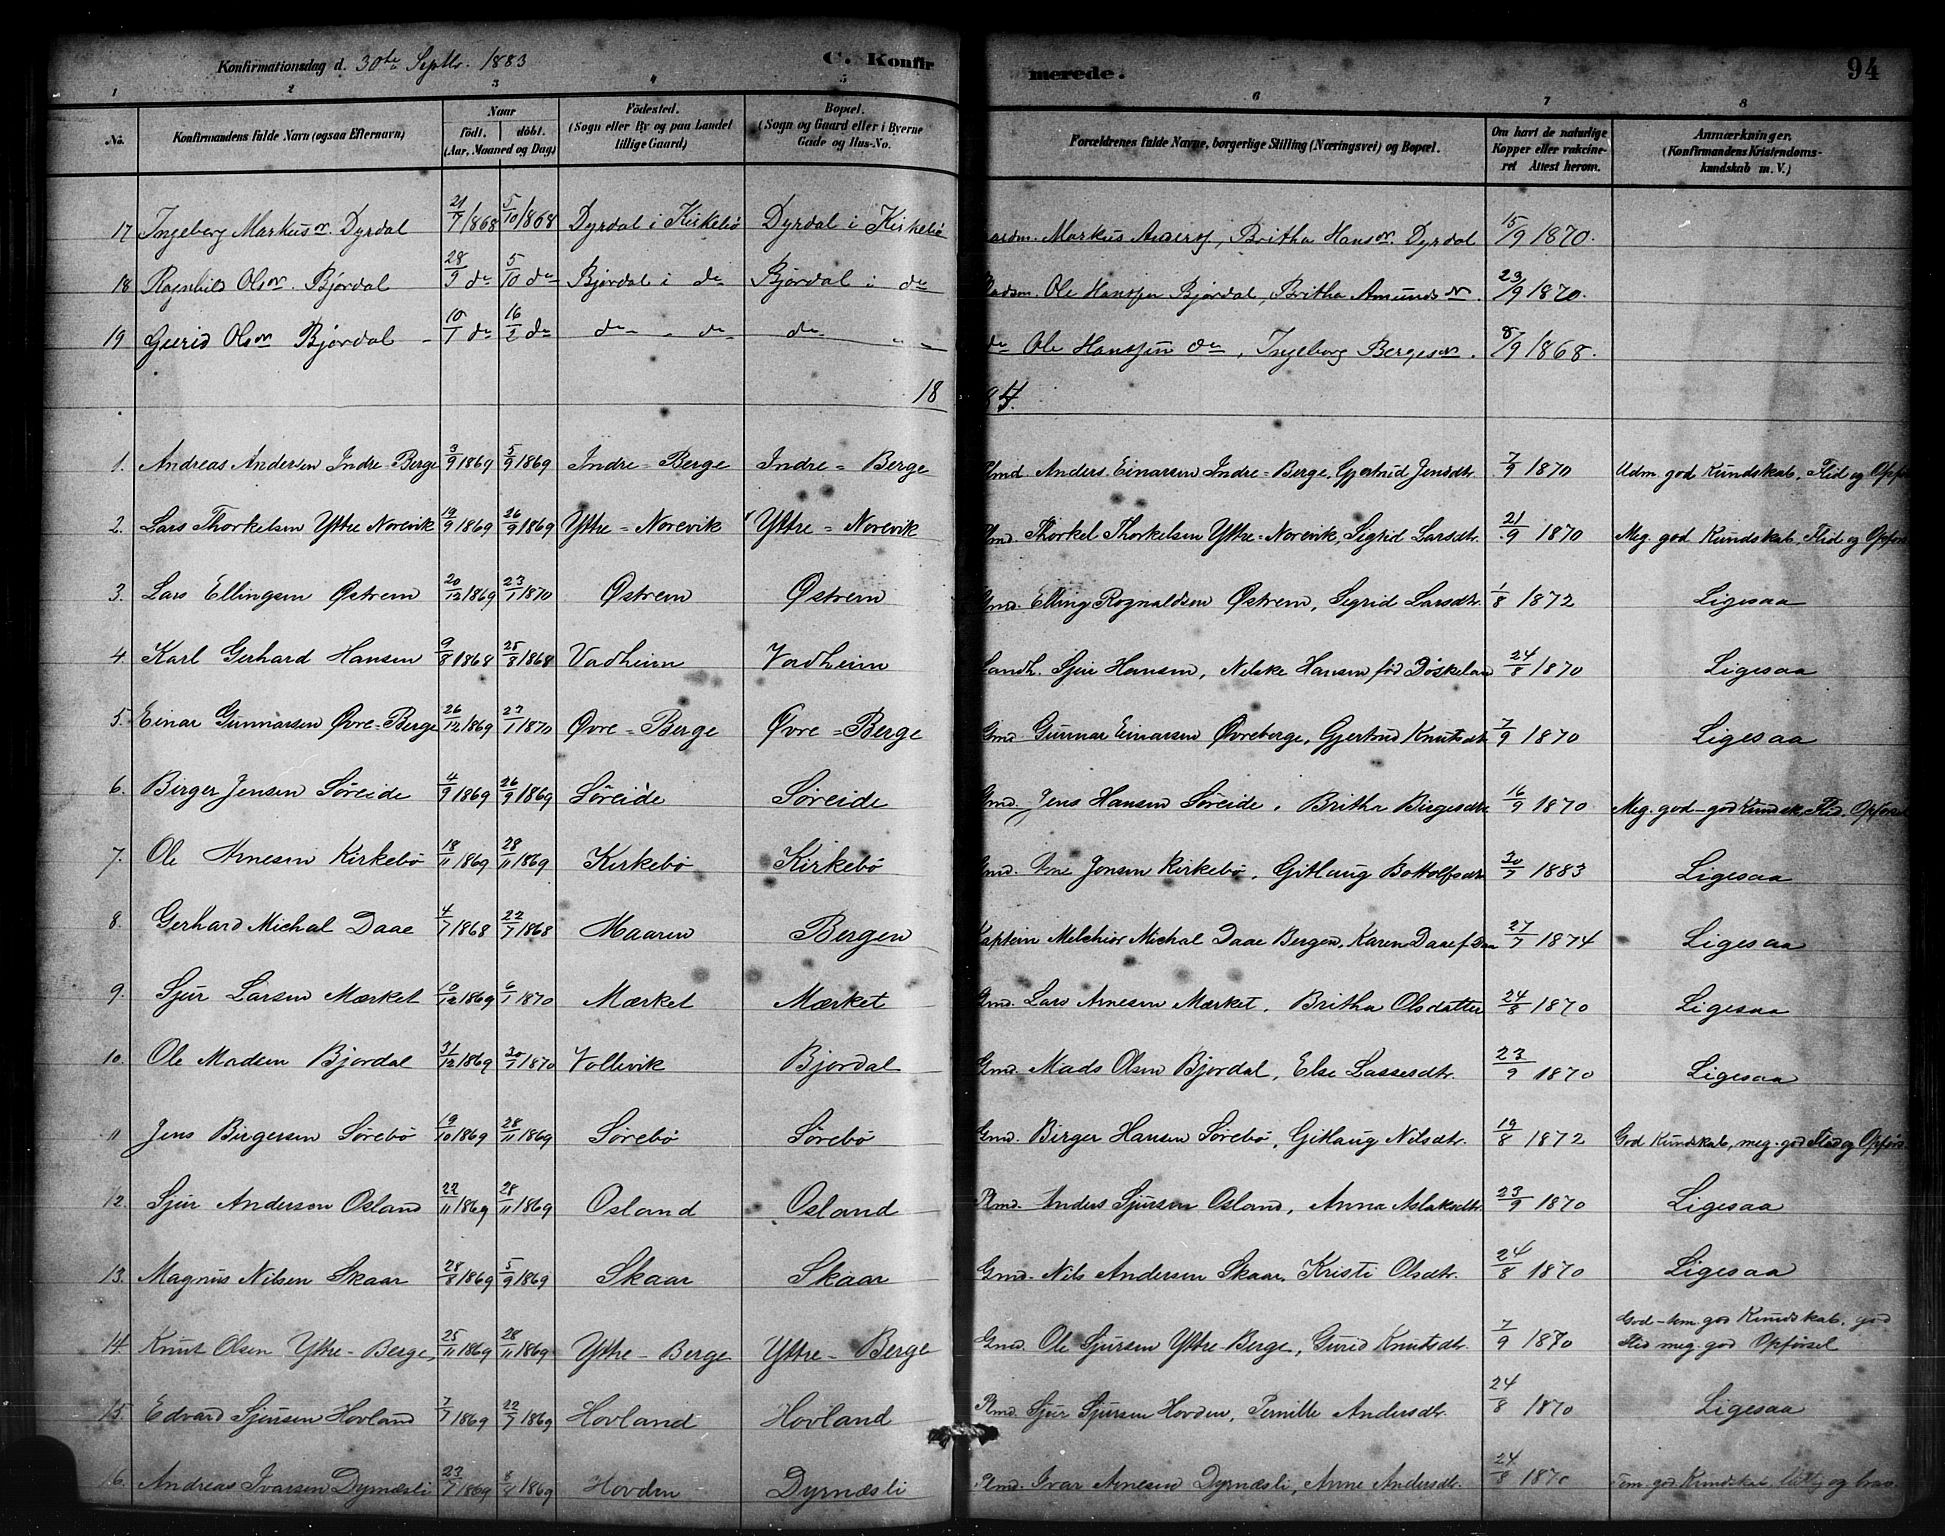 Konfirmationsdag d. 30te Septbr. 1883 C. Konfirmerede. 94
1 2 3 4 5 6 7 8
No. Konfirmandens fulde Navn (ogsaa Efternavn) Naar födt. döbt. (Aar, Maaned og Dag) Födested. (Sogn eller By og paa Landet tillige Gaard) Bopæl. (Sogn og Gaard eller i Byerne Gade og Hus-No. Forældrenes fulde Navne, borgerlige Stilling (Næringsvei) og Bopæl. Om havt de naturlige Kopper eller vakcineret Attest herom. Anmærkninger. (Konfirmandens Kristendomskundskab m. V.)
17 Ingeborg Markusdr. Dyrdal 21/9 1868 5/10 1868 Dyrdal i Kirkebö Dyrdal i Kirkebö Markus Anders, Britha Hansdr. Dyrdal 15/9 1870.
18 Ragnhild Olsdr. Bjørdal 28/9 do 5/10 do Bjørdal i do Bjørdal i do Pladsm. Ole Hansen Bjørdal, Britha Amundsdr. 23/9 1870.
19 Gurid Olsdr Bjørdal 10/1 do 16/2 do do do do do Ole Hansen do, Ingeborg Bergesdr. 8/9 1868.
1884.
1. Andreas Andersen Indre-Berge 3/9 1869 5/9 1869 Indre=Berge Indre=Berge Plmd. Anders Einarsen Indre=Berge, Gjertrud Jensdtr. 7/9 1870 Udm. god Kundskab, Flid og Opførs
2. Lars Thorkelsen Yttre Norevik 19/9 1869 26/9 1869 Yttre=Norevik Yttre=Norevik Plmd. Thorkel Thorkelsen Yttre-Norevik, Sigrid Larsdtr. 21/9 1870 Meg. god Kundskab, Flid og Opførs
3. Lars Ellingsen Østrem 20/12 1869 23/1 1870 Østrem Østrem Gmd. Elling Rognaldsen Østrem, Sigrid Larsdtr. 1/8 1872 Ligesaa
4. Karl Gerhard Hansen 9/8 1868 25/8 1868 Vadheim Vadheim Landh. Sjur Hansen, Nilske Hansen fød Døskeland 24/8 1870 Ligesaa
5. Einar Gunnarsen Øvre-Berge 26/12 1869 27/1 1870 Øvre=Berge Øvre=Berge Gmd. Gunnar Einarsen Øvreberge, Gjertrud Knutsdtr 7/9 1870 Ligesaa
6. Birger Jensen Søreide 4/9 1869 26/9 1869 Søreide Søreide Gmd. Jens Hansen Søreide, Britha Birgesdtr 16/9 1870 Meg. god-god Kundsk, Flid, Opførsel
7. Ole Arnesen Kirkebø 18/11 1869 28/11 1869 Kirkebø Kirkebø Gmd. Arne Jonsen Kirkebø, Gitlaug Bottolfsdtr 30/7 1883 Ligesaa
8. Gerhard Michal Daae 4/7 1868 22/7 1868 Maaren Bergen Kaptein Melchior Michal Daae Bergen, Karen Daae f. Daa 27/7 1874 Ligesaa
9. Sjur Larsen Mærket 10/12 1869 6/1 1870 Mærket Mærket Gmd. Lars Arnesen Mærket, Britha Olsdatter 24/8 1870 Ligesaa
10. Ole Madsen Bjordal 31/12 1869 30/1 1870 Vollevik Bjordal Gmd. Mads Olsen Bjordal, Else Lassesdtr. 23/9 1870 Ligesaa
11 Jens Birgersen Sørebø 19/10 1869 28/11 1869 Sørebø Sørebø Gmd. Birger Hansen Sørebø, Gitlaug Nilsdtr. 19/8 1872 God Kundskab, meg. god Flid og Opførs.
12. Sjur Anderson Osland 22/11 1869 28/11 1869 Osland Osland Plmd. Anders Sjurson Osland, Anna Aslaksdtr. 23/9 1870 Ligesaa
13. Magnus Nilsen Skaar 28/8 1869 5/9 1869 Skaar Skaar Gmd. Nils Andersen Skaar, Kristi Olsdtr. 24/8 1870 Ligesaa
14. Knut Olsen Yttre-Berge, 25/11 1869 28/11 1869 Yttre-Berge Yttre-Berge Gmd. Ole Sjursen Yttre-Berge, Gurid Knutsdtr. 7/9 1870 God-tem. god Kundskab, god Flid meg. god Opførsel
15. Edvard Sjursen Hovland 7/7 1869 22/7 1869 Hovland Hovland Plmd. Sjur Sjursen Hovden, Pernille Andersdtr. 24/8 1870 Ligesaa
16. Andreas Ivarsen Dyrnæsli 23/7 1869 8/8 1869 Hovden Dyrnæsli Plmd. Ivar Arnesen Dyrnæsli, Anne Andersdtr. 24/8 1870 Tem. god Kundskab, flittig og brav.